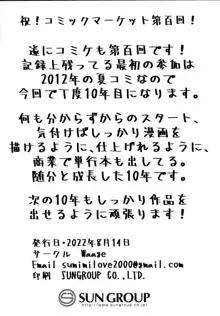 祝！コミックマーケット第百回！
遂にコミケも第百回です！
記録上残ってる最初の参加は
2012年の夏コミなので
今回で丁度10年目になります。
何も分からずからのスタート、
気付けばしっかり漫画を
描けるように、仕上げれるように、
商業で単行本も出してる。
随分と成長した10年です。
次の10年もしっかり作品を
出せるように頑張ります！
発行日・2022年8月14日
サークル Waage
Email sumimilove2000@gmail.com
印刷 SUNGROUP CO.,LTD.
SUN GROUP
http://www.sungroup.co.jp/